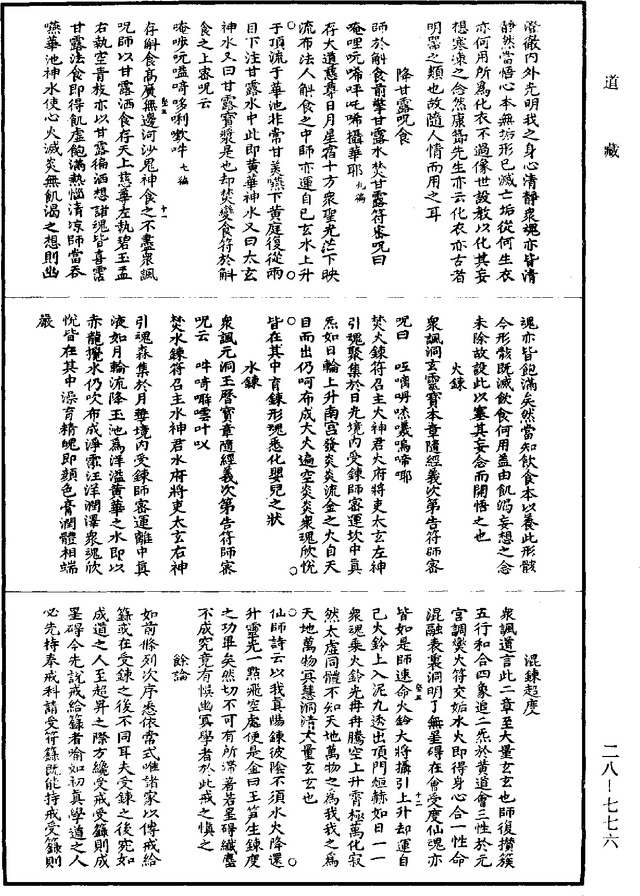 道藏
澄徹內外光明我之身心清靜衆魂亦皆清
靜然當悟心本無垢形已滅亡垢從何生衣
亦何用所爲化衣不過像世設教以化其妄
想寒凍之念然康節先生亦云化衣亦古者
明器之類也故隨人情而用之耳
降甘露呪食
師於斛食前擎甘露水焚甘露符密呪曰
唵哩吭唏呼吒唏攝華耶 九徧
存大道慈尊日月星宿十方衆聖光芒下映
流布法人斛食之中師亦運自己玄水上升
于頂流于華池非常甘美嚥下黃庭復從兩
目下注甘露水中此即黃華神水又曰太玄
神水又曰甘露寶漿是也却焚變食符於斛
食之上密呪云
唵哌吭嗑唷哆唎㗛吽 七徧
存斛食高廣無邊河沙鬼神食之不盡衆諷
呪師以甘露洒食存天上慈尊左執碧玉盂
右執空青枝亦以甘露徧洒想諸魂皆喜霑
甘露法食即得飢虛飽滿熱惱清涼師當吞
嚥華池神水使心火滅炎無飢渴之想則幽
魂亦皆飽滿矣然當知飲食本以養此形骸
今形骸既滅飲食何用盖由飢渴妄想之念
未除故設此以塞其妄念而開悟之也
火鍊
衆諷洞玄靈寶本章隨經義次第告符師密
呪曰
焚火鍊符召主火神君火府將吏太玄左神
引魂聚集於日光境內受鍊師密運坎中真
炁如日輪上升南宮發炎炎流金之火自天
目而出仍呵布成大火遍空炎炎衆魂欣悅
皆在其中育鍊形魂悉化嬰兒之狀
水鍊
衆諷元洞玉曆寶章隨經義次第告符師密
呪云
焚水鍊符召主水神君水府將吏太玄右神
引魂森集於月華境內受鍊師密運離中真
液如月輪流降玉池爲洋溢黃華之水即以
赤龍攪水仍吹布成淨霐汪洋潤澤衆魂欣
悅皆在其中澡育精魄即顏色膏潤體相端
嚴
混鍊超度
衆諷道言此二章至大量玄玄也師復攢簇
五行和合四象追二炁於黃道會三性於元
宮調燮火符交姤水火即得身心合一性命
混融表裏洞明了無罣碍在會受度仙魂亦
皆如是師速命火鈴大將攝引上升却運自
己火鈴上入泥九透出頂門烜赫如日一一
衆魂乘火鈴光冉冉騰空上升霄極萬化寂
然太虛同體不知天地萬物之爲我我之爲
天地萬物冥慧洞清大量玄玄也
仙師詩云以我真陽鍊彼陰不須水火降還
升靈光一點飛空處便是金曰王笋生鍊度
之功畢矣然切不可有所滯着若罣碍纖塵
不成究竟有悞幽冥學者於此戒之慎之
餘論
如前條列次序悉依常式唯諸家以傳戒給
籙或在受鍊之後不同耳夫受鍊之後究如
成道之人至超昇之際方纔受戒受籙則成
罣碍今先說戒給籙者喻如初真學道之人
必先持奉戒科請受符籙既能持戒受籙則
二八—七七六